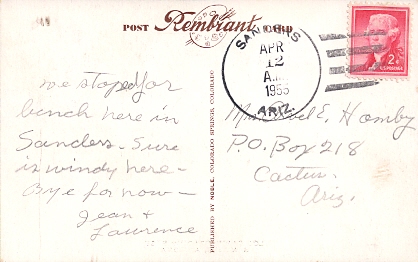 POST Rembrant CARD
we stoped for
lunch here in
Sanders. Sure
is windy here -
Bye for now -
Jean &
Lawrence
PUBLISHED BY NOBLE, COLORADO SPRINGS, COLORADO
SANDERS
APR
12
A.M.
1955
ARIZ.
2¢
U.S. POSTAGE
E. Hamby
P.O. Box 218
Cactus
Ariz.